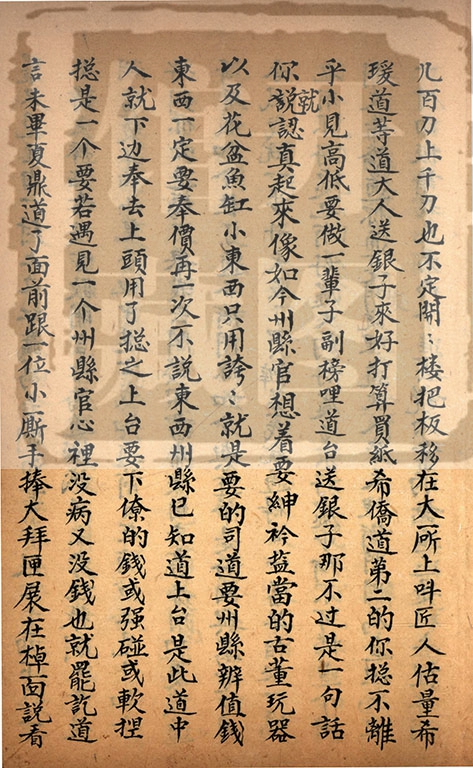 几百刀上千刀也不定開〻楼把板移在大所上呌匠人估量希
瑗道等道大人送銀子來好打算買紙希僑道第二的你捴不離
乎小見高低要做一輩子副榜哩道台送銀子那不过是一句話
你就説認真起來像如今州縣官想着要紳衿盐當的古董玩器
以及花盆魚缸小東西只用誇〻就是要的司道要州縣辨值錢
東西一定要奉價再一次不説東西州縣已知道上台是此道中
人就下边奉去上頭用了捴之上台要下僚的錢或强碰或軟揑
捴是一个要若遇見一个州縣官心裡没病又没錢也就罷説道
言未畢夏鼎道了面前跟一位小厮手捧大拜匣展在棹面説看